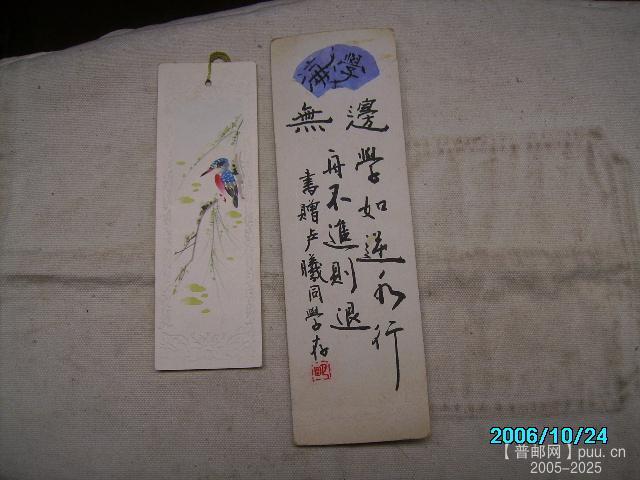 學海
無邊
學如逆水行
舟不進則退
書贈卢曦同學存
2006/10/24
【普邮网】puu.cn
2005-2025